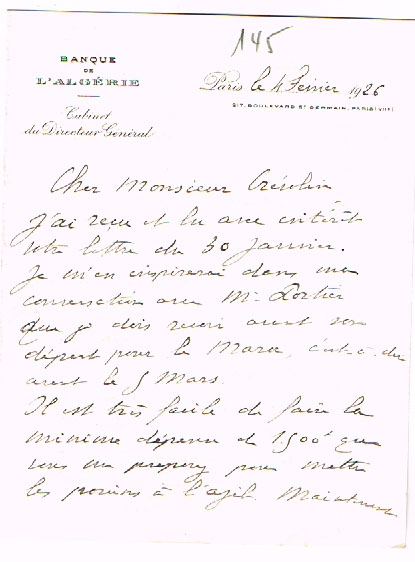 145
BANQUE
DE
L'ALGÉRIE
Cabinet
du Directeur Général
Paris le 4 Février 1926
217, BOULEVARD ST GERMAIN, PARIS (VIIe)
Cher Monsieur
J'ai reçu et lu avec intérêt
votre lettre du 30 Janvier.
Je m'en inspirerai dans ma
conversation avec Mr
que je dois revoir avant son
départ pour le Maroc, c'est-à-dire
avant le 5 Mars.
Il est très facile de faire la
minime dépense de 1.500f que
vous me proposez pour mettre
les à l'. Maintenant